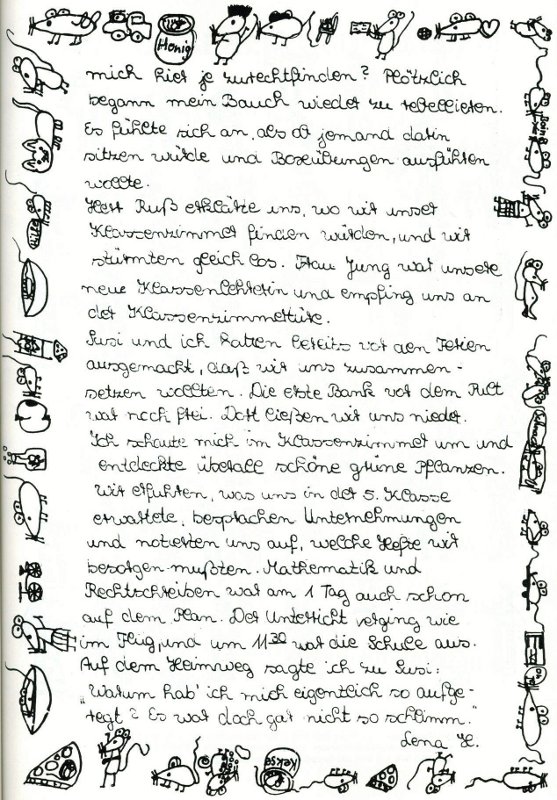 Honig
mich hier je zurechtfinden? Plötzlich
begann mein Bauch wieder zu rebellieren.
Es fühlte sich an, als ob jemand darin
sitzen würde und Boxübungen ausführen
wollte.
Herr Ruß erklärte uns, wo wir unser
Klassenzimmer finden würden, und wir
stürmten gleich los. Frau Jung war unsere
neue Klassenlehrerin und empfing uns an
der Klassenzimmertüre.
Susi und ich hatten bereits vor den Ferien
ausgemacht, daß wir uns zusammen-
setzen wollten. Die erste Bank vor dem Pult
war noch frei. Dort ließen wir uns nieder.
Ich schaute mich im Klassenzimmer um und
entdeckte überall schöne grüne Pflanzen.
Wir erfuhren, was uns in der 5. Klasse
erwartete, besprachen Unternehmungen
und notierten uns auf, welche Hefte wir
besorgen mußten. Mathematik und
Rechtschreiben war am 1 Tag auch schon
auf dem Plan. Der Unterricht verging wie
im Flug, und um 11³⁰ war die Schule aus.
Auf dem Heimweg sagte ich zu Susi:
„Warum hab' ich mich eigentlich so aufge-
regt? Es war doch gar nicht so schlimm."
Lena H.
Kekse